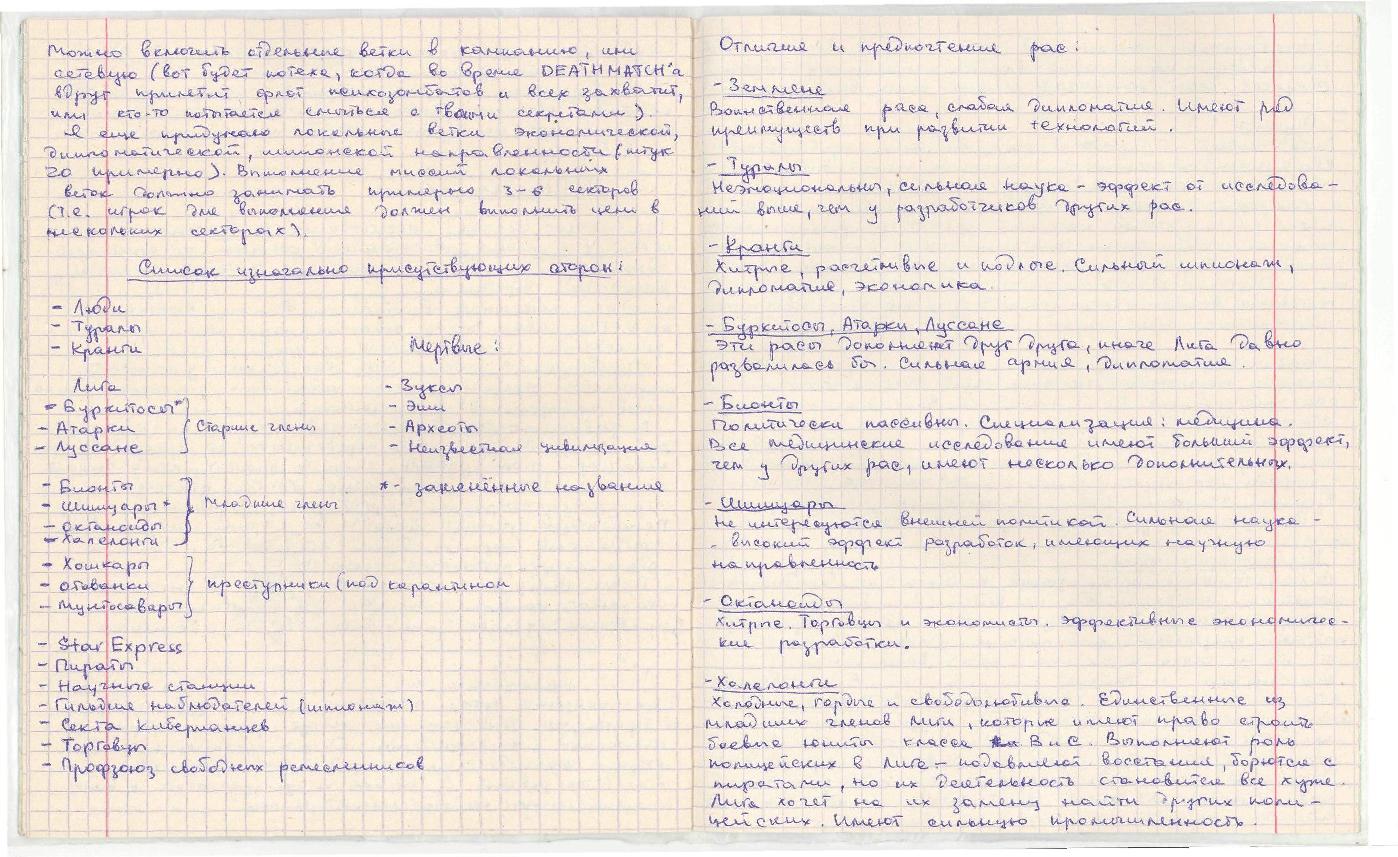 Можно включить отдельные ветки в кампанию, или
сетевую (вот будет потеха, когда во время DEATHMATCH'а
вдруг прилетит флот психозомбатов и всех захватит,
или кто-то попытается смыться с твоими секретами).
Я еще придумаю локальные ветки экономической,
дипломатической, шпионской направленности (штук
20 примерно). Выполнение миссий локальных
веток должно занимать примерно 3-6 секторов
(т.е. игрок для выполнения должен выполнить цели в
нескольких секторах).
Список изначально присутствующих сторон:
- Люди
- Туралы
- Кранги
Лига
- Буркитосы*
- Атарки
- Луссане
Старшие члены
- Бионты
- Шишуары*
- Октаноиды
- Халелонги
Младшие члены
- Хошкары
- Отованки
- Мунтосавары
преступники (под карантином
- Star Express
- Пираты
- Научные станции
- Гильдия наблюдателей (шпионаж)
- Секта киберпанцев
- Торговцы
- Профзоюз свободных ремесленников
Мертвые:
- Зуксы
- Эши
- Археоты
- Неизвестная цивилизация
*- заменённые название
Отличия и предпочтение рас:
- Земляне
Воинственная раса, слабая дипломатия. Имеют ряд
преимуществ при развитии технологий.
- Туралы
Неэмоциональны, сильная наука - эффект от исследова-
ний выше, чем у разработчиков других рас.
- Кранги
Хитрые, расчетливые и подлые. Сильный шпионаж,
дипломатия, экономика.
- Буркитосы, Атарки, Луссане
Эти расы дополняют друг друга, иначе Лига давно
развалилась бы. Сильная армия, дипломатия.
- Бионты
Политически пассивны. Специализация: медицина.
Все медицинские исследование имеют больший эффект,
чем у других рас, имеют несколько дополнительных.
- Шишуары
Не интересуются внешней политикой. Сильная наука -
- высокий эффект разработок, имеющих научную
направленность
- Октаноиды
Хитрые. Торговцы и экономисты. Эффективные экономичес-
кие разработки.
- Халелонги
Холодные, гордые и свободолюбивые. Единственные из
младших членов Лиги, которые имеют право строить
боевые юниты класса В и С. Выполняют роль
полицейских в Лиге - подавляют восстания, борются с
пиратами, но их деятельность становится все хуже.
Лига хочет на их замену найти других поли-
цейских. Имеют сильную промышленность.